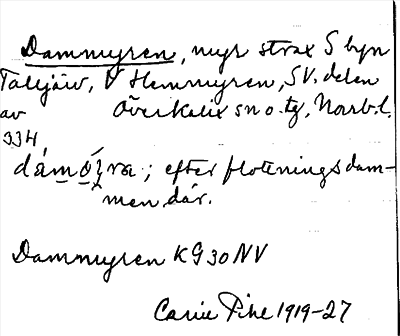 Dammyren, myr strax S byn
Talljärv, V Hemmyren, SV. delen
av Överkalix sn o. tg, Norrb. l.
334
dám; efter flottningsdam-
men där.
Dammyren KG 30 NV
Carin Pihl 1919-27